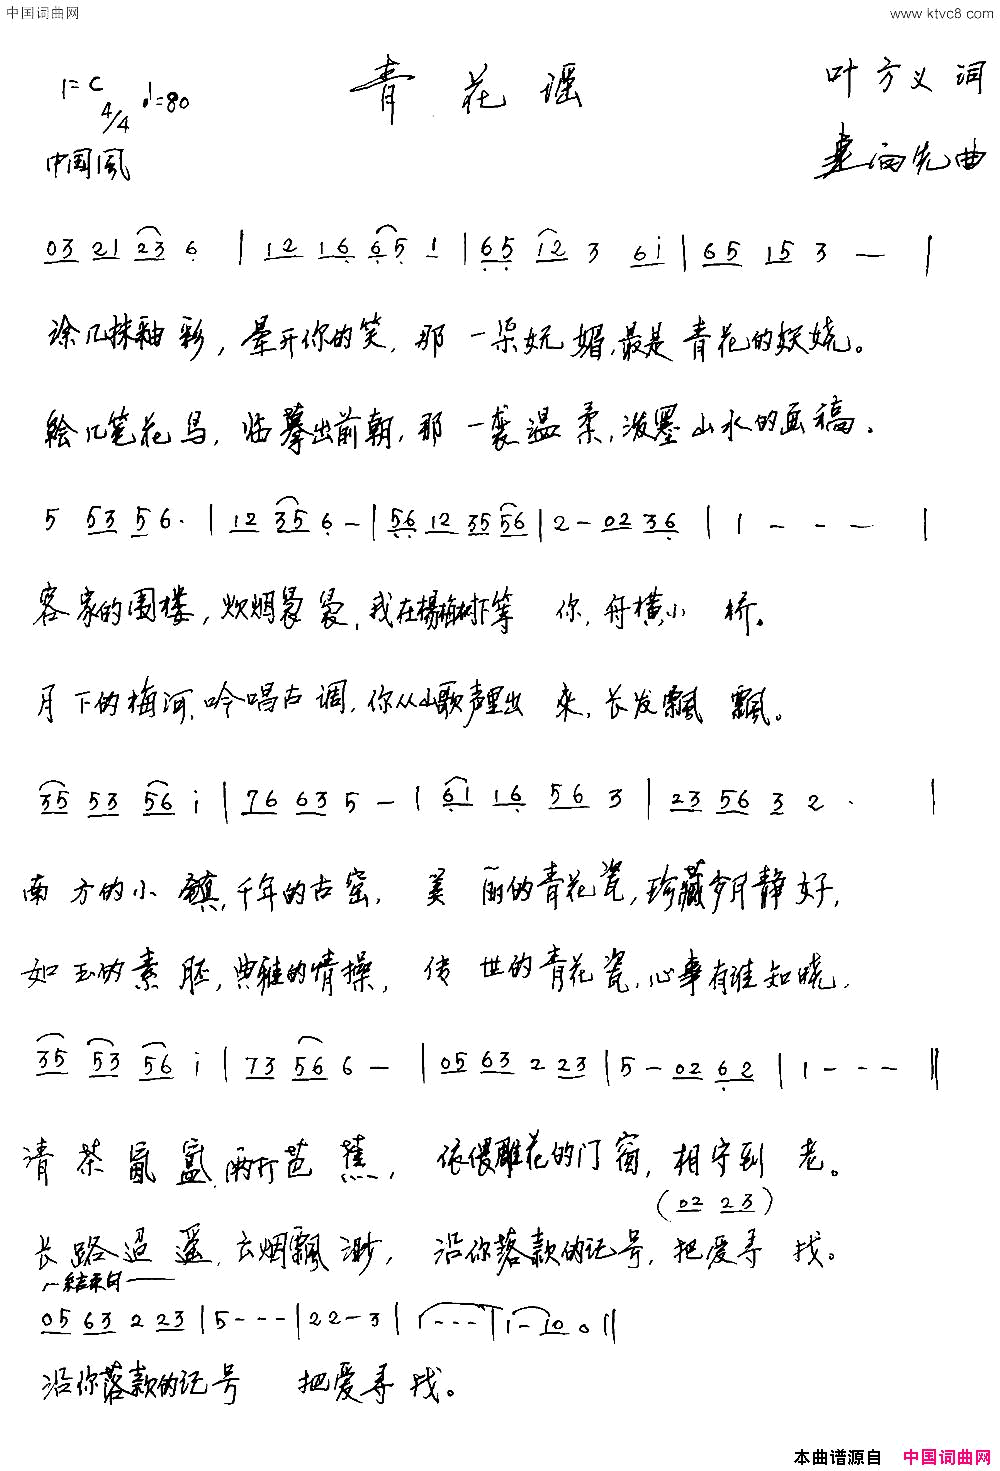 中国词曲网 www.ktvc8.com
1=C 4/4 ♩=80 青花谣 叶方义 词
中国風 向先曲
03 21 23 6 | 12 16 65 1 | 65 12 3 6i | 65 15 3 — |
涂几抹釉彩，晕开你的笑，那一朵妩媚，最是青花的妖娆。
絵几笔花鸟，临摹出前朝，那一袭温柔，泼墨山水的画稿。
5 53 56· | 12 35 6 - | 56 12 35 56 | 2 - 02 36 | 1 - - - |
客家的围楼，炊烟袅袅，我在楊梅树下等你，舟横小桥。
月下的梅河，吟唱古调，你从山歌声里出来，长发飘飄。
35 53 56 i | 76 63 5 - | 61 16 56 3 | 23 56 3 2 · |
南方的小鎮，千年的古窑，美丽的青花瓷，珍藏岁月静好，
如玉的素胚，典雅的情操，传世的青花瓷，心事有谁知晓，
35 53 56 i | 73 56 6 - | 05 63 2 23 | 5 - 02 62 | 1 - - - ‖
清茶氤氲，雨打芭蕉，依偎雕花的门窗，相守到老。
(02 23)
长路迢遥，云烟飘渺，沿你落款的记号，把爱寻找。
结束句
05 63 2 23 | 5 - - - | 22 - 3 | 1 - - - | 1 - 10 0 ‖
沿你落款的记号 把爱寻找。
本曲谱源自 中国词曲网